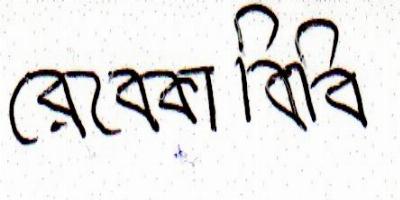 রেবেকা বিবি